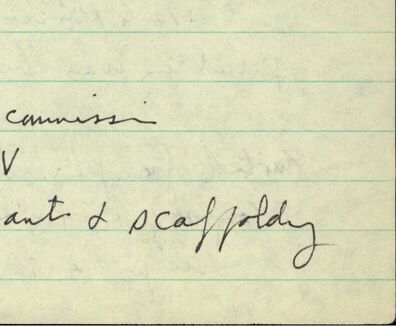 commissi
V
ant & scaffoldg